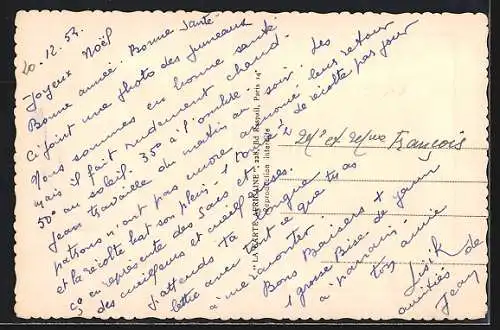 20.12.53.
Joyeux Noël
Bonne année. Bonne Santé
Ci joint une photo des jumeaux
Nous sommes en bonne santé
mais il fait rudement chaud.
50° au soleil. 35° à l'ombre.
Jean travaille du matin au soir. Les
patrons n'ont pas encore annoncé leur retour
et la récolte bat son plein. 1 tonne ½ de récolte pas jour
ça représente des sacs et
des cueilleurs et cueilleuses.
J'attends ta longue
lettre avec tout ce que tu as
à me raconter.
Bons Baisers +
1 grosse Bise de
à parrain.
ton amie
amitiés de
Jean
Mr et Mme François
LA CARTE AFRICAINE, Bld Raspail, Paris 14e
Reproduction interdite